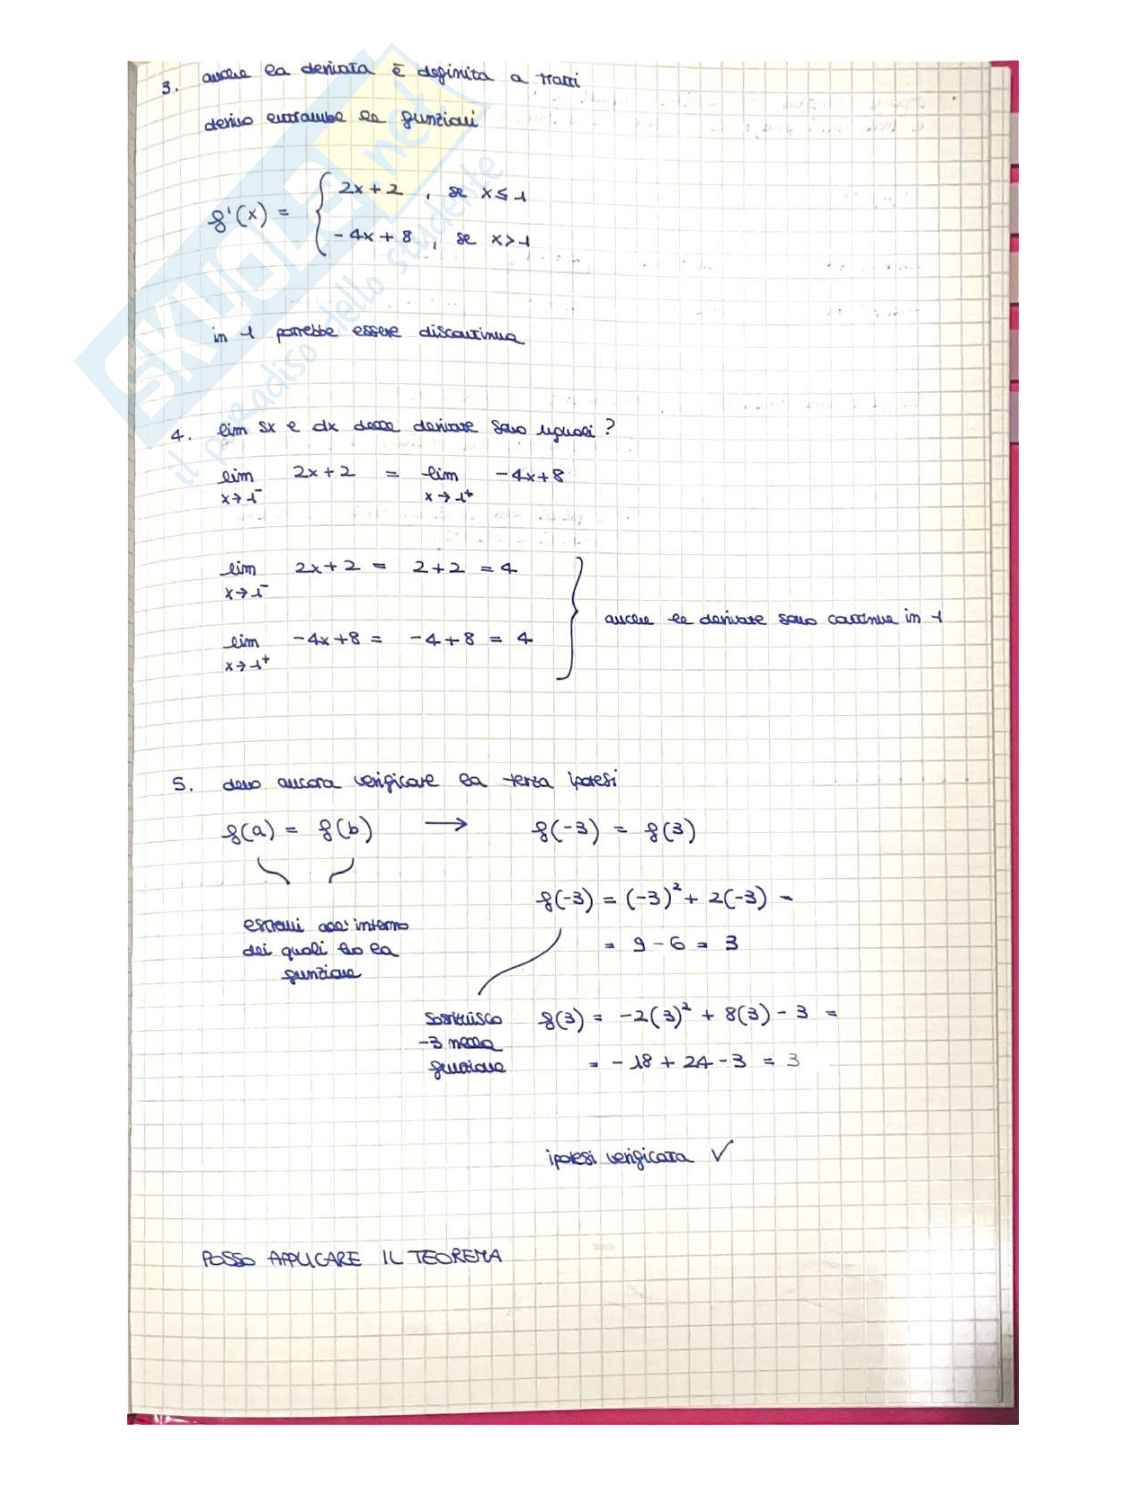 3. anche la derivata è definita a tratti
derivo entrambe le funzioni
f'(x) = { 2x+2 , se x≤1
-4x+8 , se x>1
in 1 potrebbe essere discontinua
4. lim sx e dx delle derivate sono uguali?
lim 2x+2 = lim -4x+8
x→1⁻ x→1⁺
lim 2x+2 = 2+2 = 4
x→1⁻
anche le derivate sono continue in 1
lim -4x+8 = -4+8 = 4
x→1⁺
5. devo ancora verificare la terza ipotesi
f(a) = f(b) → f(-3) = f(3)
f(-3) = (-3)² + 2(-3) =
estremi all'interno
dei quali ho la
funzione
= 9-6 = 3
sostituisco
-3 nella
funzione
f(3) = -2(3)² + 8(3) - 3 =
= -18 + 24 - 3 = 3
ipotesi verificata ✓
POSSO APPLICARE IL TEOREMA
SKUOLA.net
il paradiso dello studente